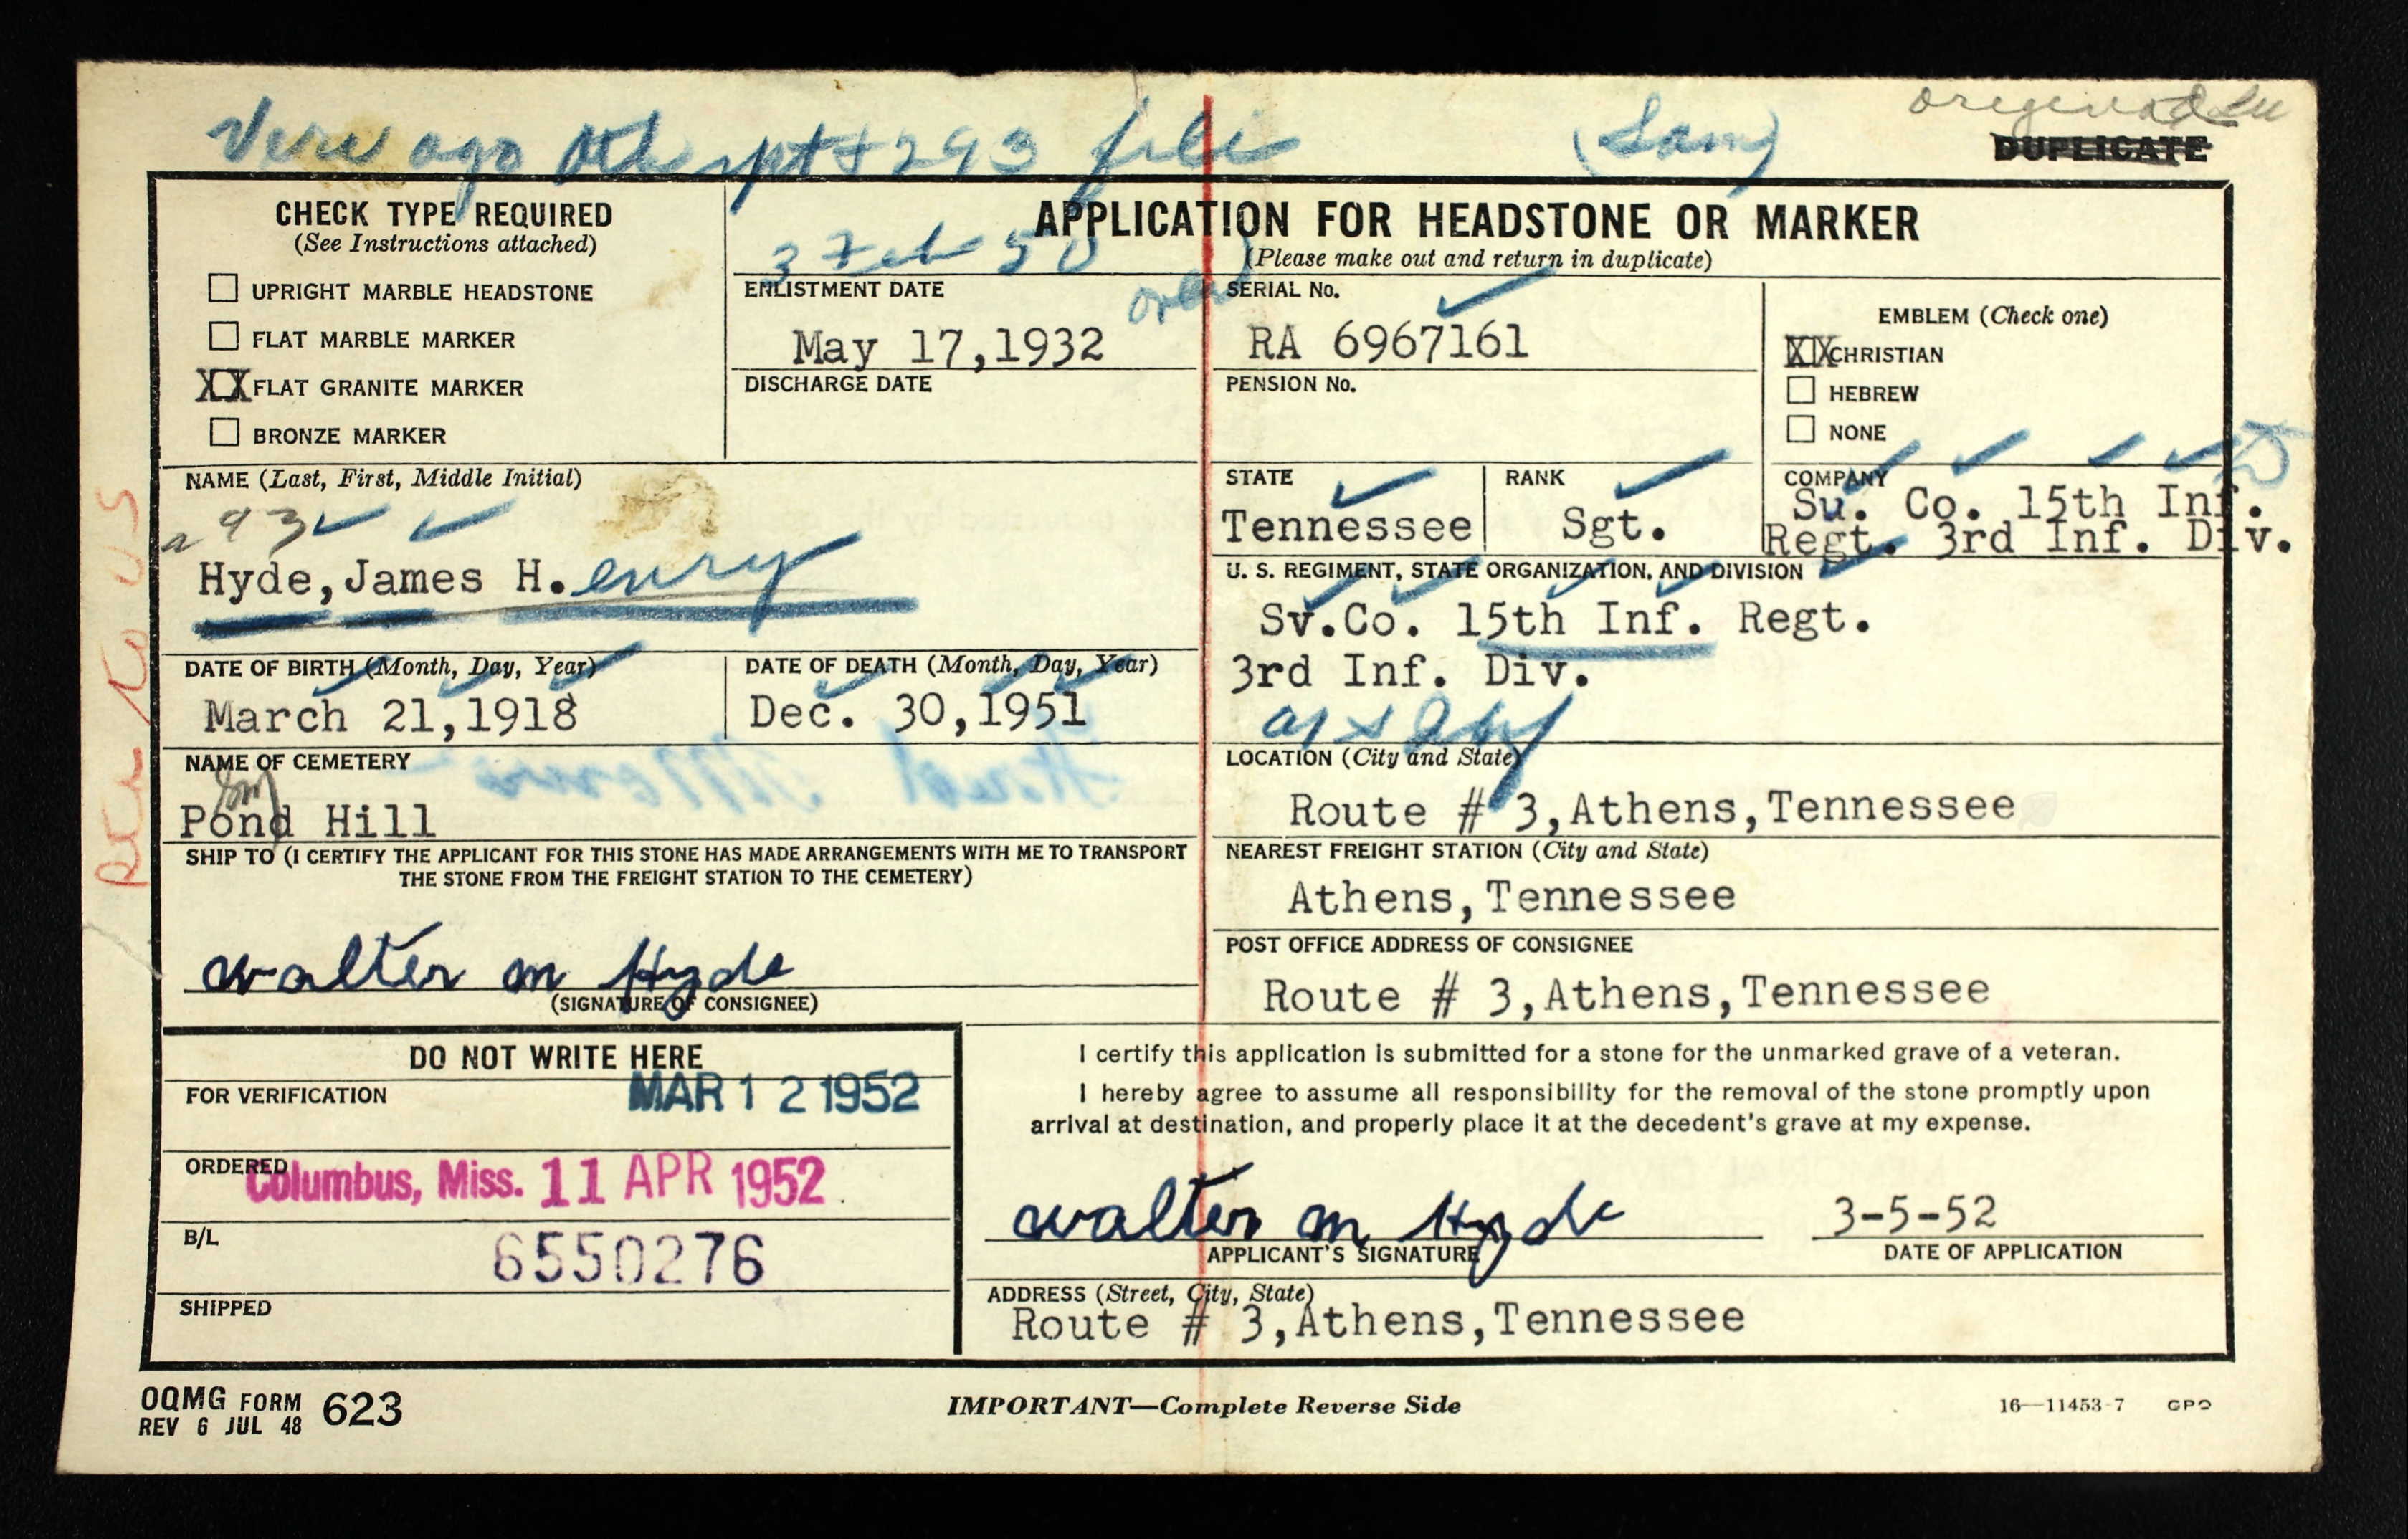 (Sam)
DUPLICATE
CHECK TYPE REQUIRED
(See Instructions attached)
UPRIGHT MARBLE HEADSTONE
FLAT MARBLE MARKER
XX FLAT GRANITE MARKER
BRONZE MARKER
APPLICATION FOR HEADSTONE OR MARKER
(Please make out and return in duplicate)
3 Feb 50
ENLISTMENT DATE
May 17,1932
DISCHARGE DATE
SERIAL No.
RA 6967161
PENSION No.
EMBLEM (Check one)
XX CHRISTIAN
HEBREW
NONE
NAME (Last, First, Middle Initial)
Hyde,James H.enry
STATE
Tennessee
RANK
Sgt.
COMPANY
Su. Co. 15th Inf.
Regt. 3rd Inf. Div.
U. S. REGIMENT, STATE ORGANIZATION, AND DIVISION
Sv.Co. 15th Inf. Regt.
3rd Inf. Div.
DATE OF BIRTH (Month, Day, Year)
March 21,1918
DATE OF DEATH (Month, Day, Year)
Dec. 30,1951
NAME OF CEMETERY
Pond Hill
LOCATION (City and State)
Route # 3,Athens,Tennessee
SHIP TO (I CERTIFY THE APPLICANT FOR THIS STONE HAS MADE ARRANGEMENTS WITH ME TO TRANSPORT
THE STONE FROM THE FREIGHT STATION TO THE CEMETERY)
walter m Hyde
(SIGNATURE OF CONSIGNEE)
NEAREST FREIGHT STATION (City and State)
Athens,Tennessee
POST OFFICE ADDRESS OF CONSIGNEE
Route # 3,Athens,Tennessee
DO NOT WRITE HERE
FOR VERIFICATION
MAR 12 1952
ORDERED
Columbus, Miss. 11 APR 1952
B/L
6550276
SHIPPED
I certify this application is submitted for a stone for the unmarked grave of a veteran.
I hereby agree to assume all responsibility for the removal of the stone promptly upon
arrival at destination, and properly place it at the decedent's grave at my expense.
walter m Hyde
APPLICANT'S SIGNATURE
3-5-52
DATE OF APPLICATION
ADDRESS (Street, City, State)
Route # 3,Athens,Tennessee
OQMG FORM 623
REV 6 JUL 48
IMPORTANT—Complete Reverse Side
16—11453-7 GPO